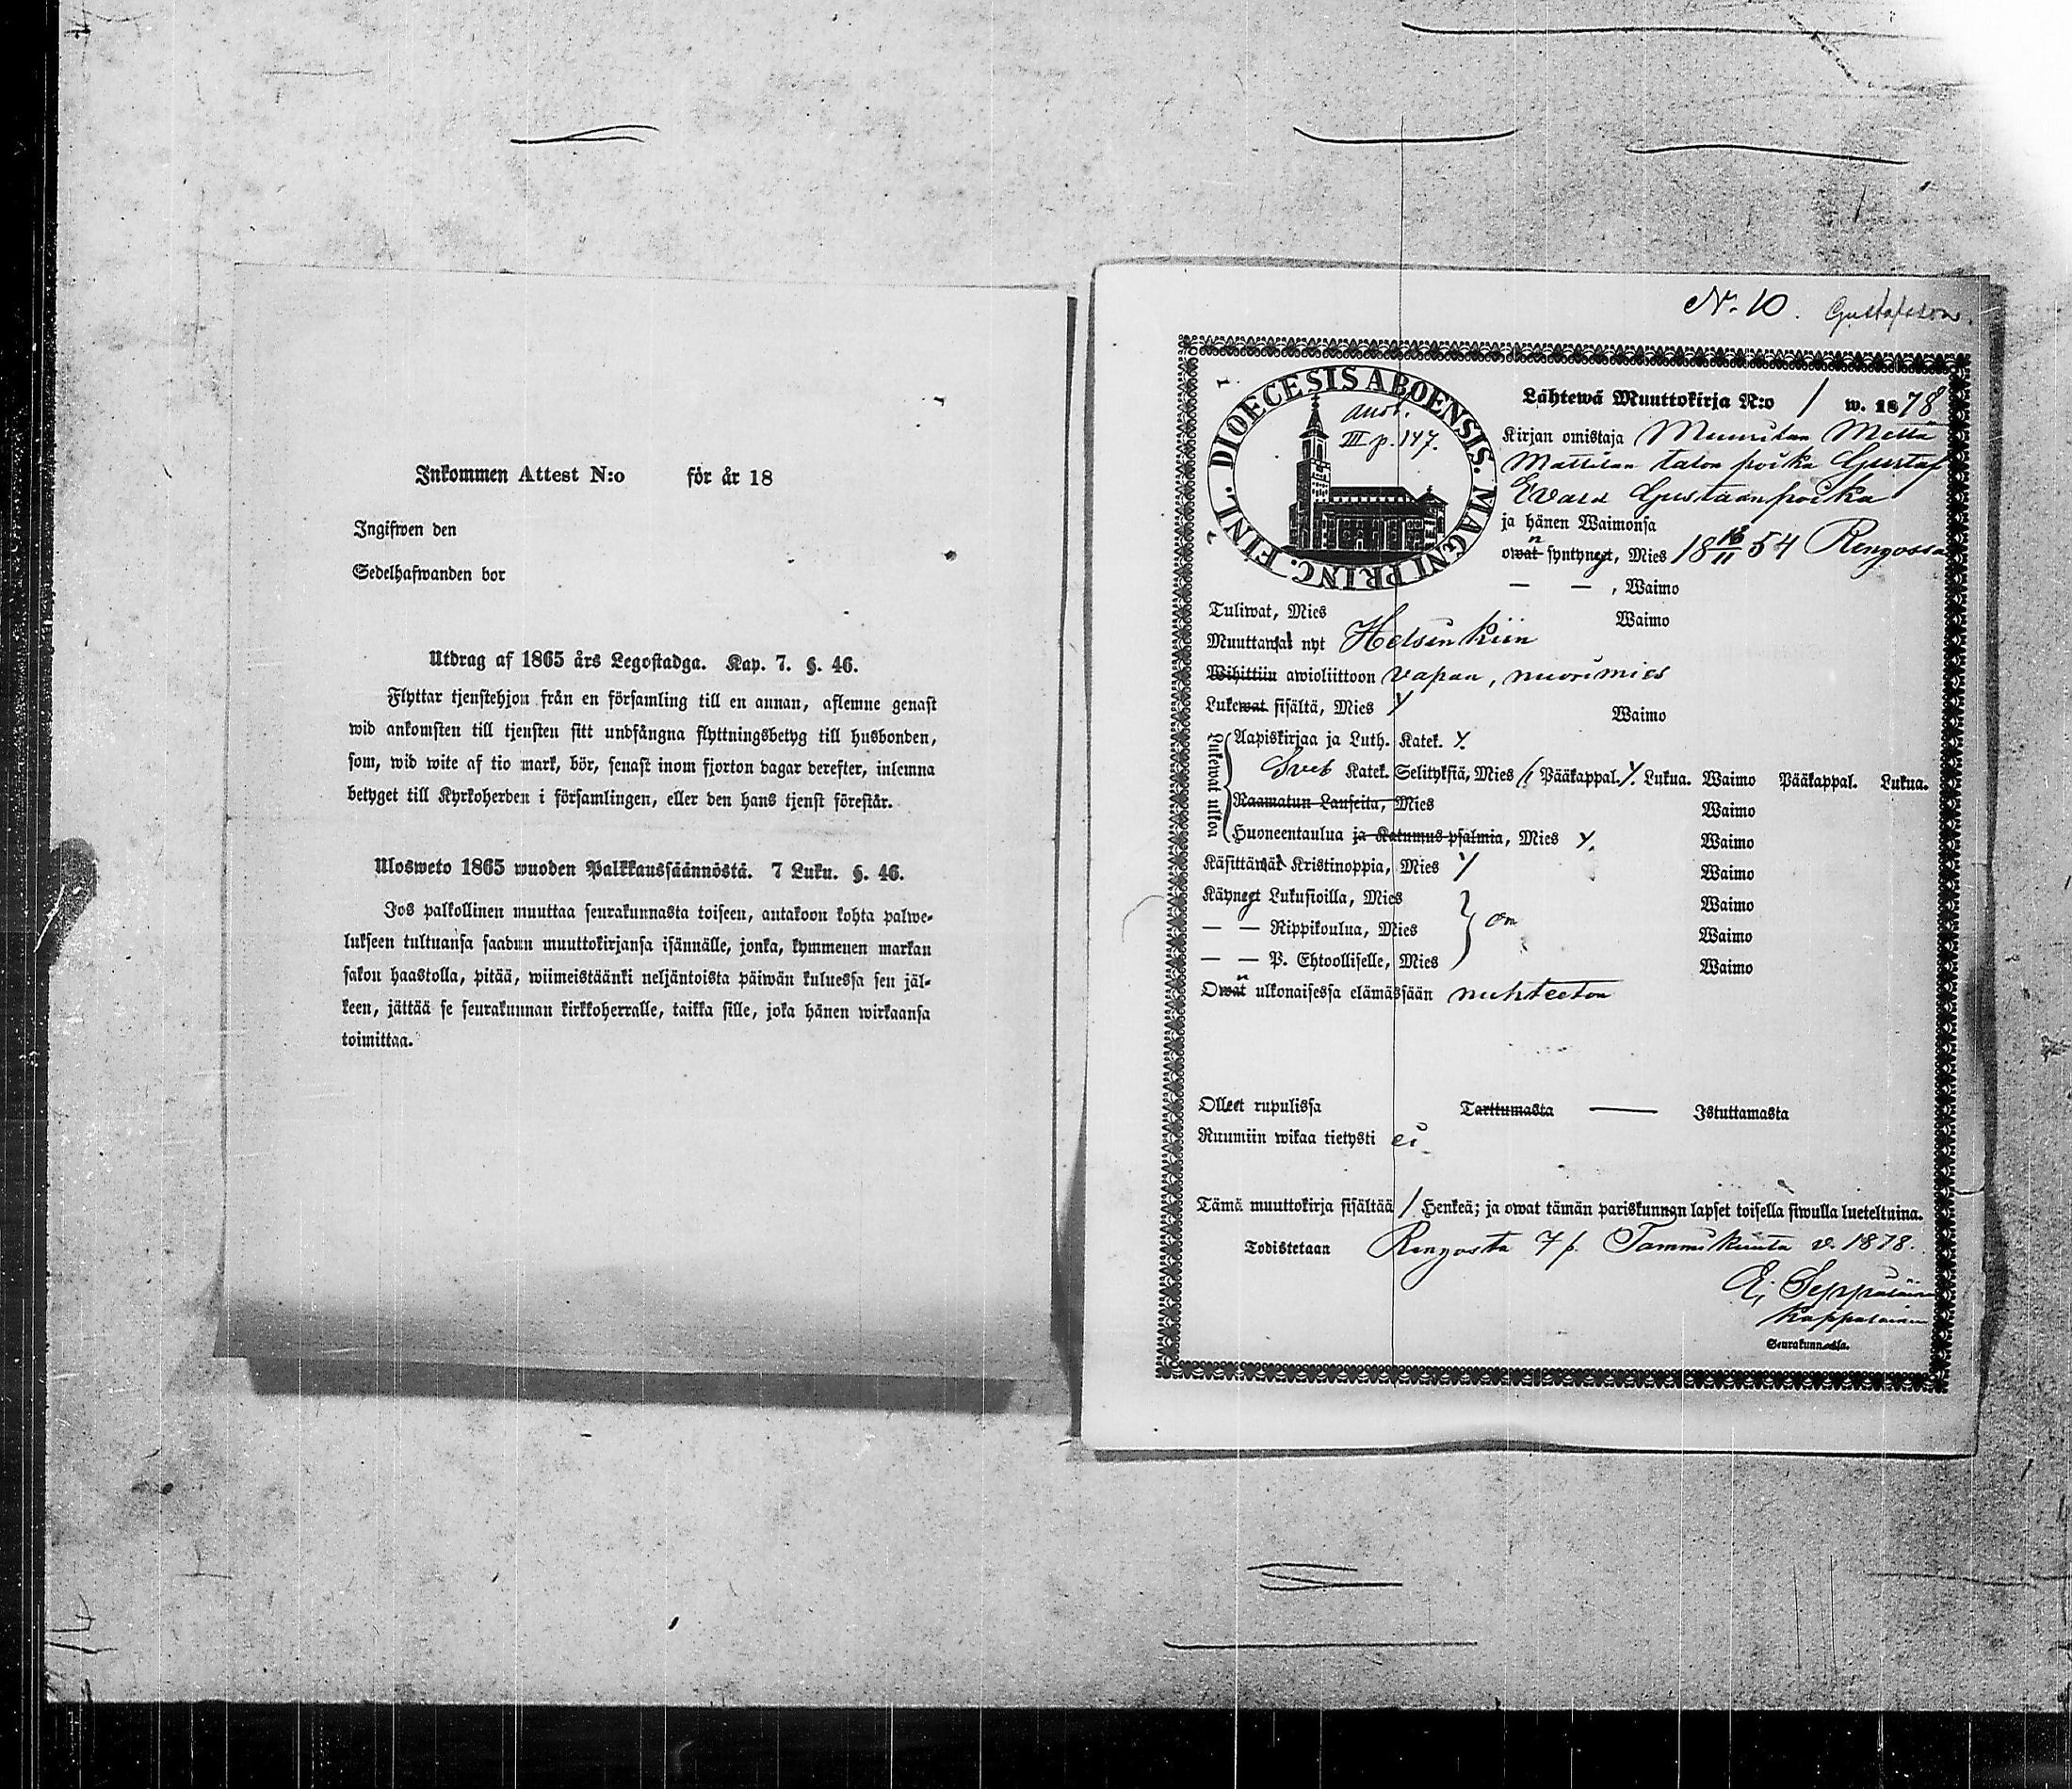 Inkommen Attest N:o för år 18
Ingifwen den
Sedelhafwanden bor
Utdrag af 1865 års Legostadga. Kap. 7. §. 46.
Flyttar tjenstehjon från en församling till en annan, aflemne genast
wid ankomsten till tjensten sitt undfångna flyttningsbetyg till husbonden,
som, wid wite af tio mark, bör, senast inom fjorton dagar derefter, inlemna
betyget till Kyrkoherden i församlingen, eller den hans tjenst förestår.
Ulosweto 1865 wuoden Palkkaussäännöstä. 7 Luku. §. 46.
Jos palkollinen muuttaa seurakunnasta toiseen, antakoon kohta palwe-
lukseen tultuansa saadun muuttokirjansa isännälle, jonka, kymmenen markan
sakon haastolla, pitää, wiimeistäänki neljäntoista päiwän kuluessa sen jäl-
keen, jättää se seurakunnan kirkkoherralle, taikka sille, joka hänen wirkaansa
toimittaa.
N. 10. Gustafsson
DIOECESIS ABOENSIS. MAGNI PRINC. FINL.
III p. 147.
Lähtewä Muuttokirja N:o 1 w. 1878
Kirjan omistaja
Mattilan talon poika Gustaf
Evard Gustaanpoika
ja hänen Waimonsa
owat n syntyneet, Mies 18 18/11 54 Rengossa
— — , Waimo
Tuliwat, Mies Waimo
Muuttawat nyt Helsinkiin
Wihittiin awioliittoon vapaa, nuorimies
Lukewat sisältä, Mies Y Waimo
Lukewat ulkoa
Aapiskirjaa ja Luth. Katek. Y.
Sveb Katek. Selityksiä, Mies Pääkappal. Y. Lukua. Waimo Pääkappal. Lukua.
Raamatun Lauseita, Mies Waimo
Huoneentaulua ja Katumus-psalmia, Mies Y. Waimo
Käsittäwät Kristinoppia, Mies Y Waimo
Käyneet Lukusioilla, Mies Waimo
— — Rippikoulua, Mies on Waimo
— — P. Ehtoolliselle, Mies Waimo
Owat n ulkonaisessa elämässään nuhteeton
Olleet rupulissa Tarttumasta — Istuttamasta
Ruumiin wikaa tietysti ei
Tämä muuttokirja sisältää 1 Henkeä; ja owat tämän pariskunnan lapset toisella siwulla lueteltuina.
Todistetaan Rengosta 7 p. Tammikuuta v. 1878.
Seppäläinen
Kappalainen
Seurakunnassa.